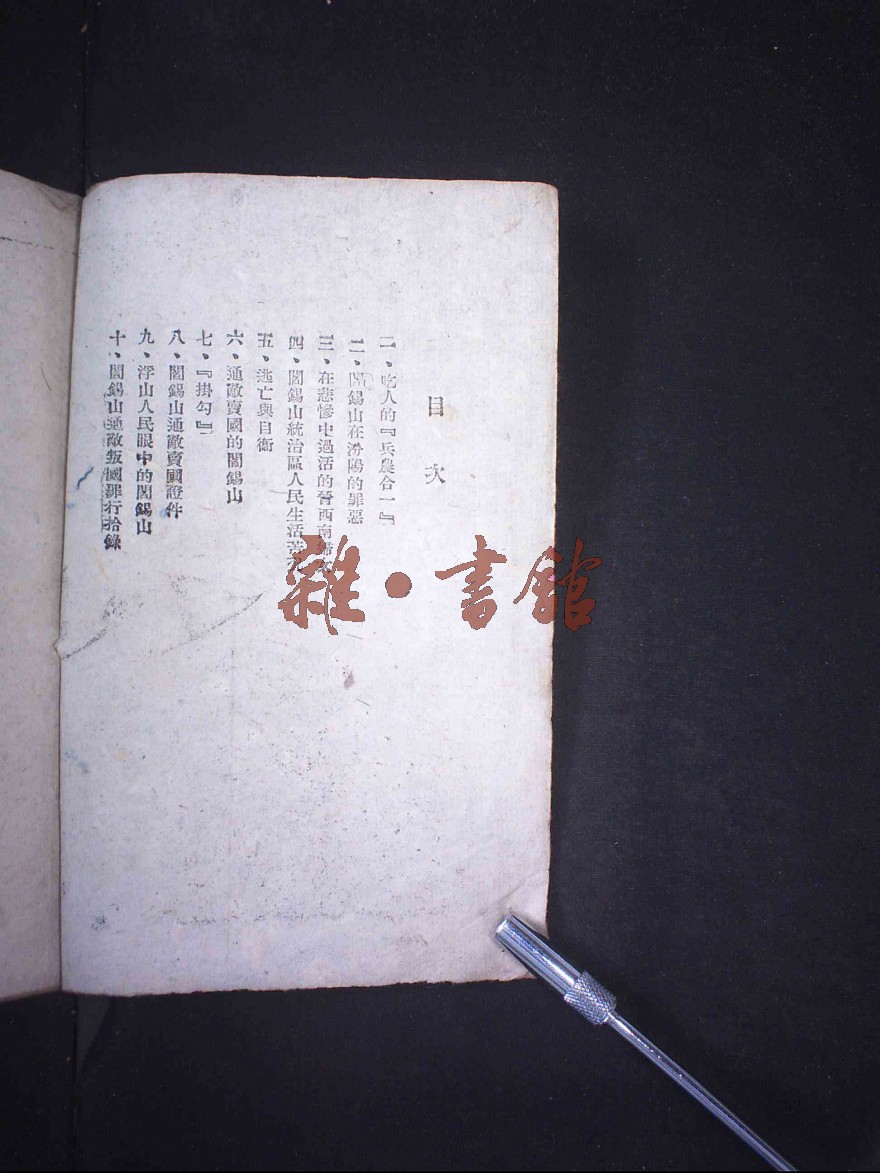 目次
一、吃人的『兵農合一』
二、閻錫山在汾陽的罪惡
三、在悲慘中過活的晉西南婦女
四、閻錫山統治區人民生活苦
五、逃亡與自衛
六、通敵賣國的閻錫山
七、『掛勾』
八、閻錫山通敵賣國證件
九、浮山人民眼中的閻錫山
十、閻錫山通敵叛國罪行拾錄
雜·書館